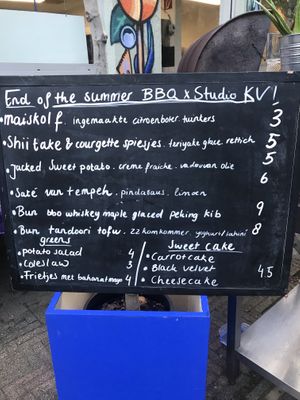 End of the summer BBQ x Studio KV!
• maiskolf. ingemaakte citroenboter. tuinkers 3
• Shiitake & courgette spiesjes. teriyake glace. rettich 5
• jacked sweet potato. creme fraiche. vadouvan olie 5
• Saté van tempeh. pindasaus. limoen 6
• Bun bbq whiskey maple glaced peking kib 9
• Bun tandoori tofu. zz komkommer. yoghurt tahini 8
greens
• potato salad 4
• coleslaw 3
• Frietjes met baharatmayo 4
Sweet cake
• Carrotcake
• Black velvet 4.5
• Cheesecake